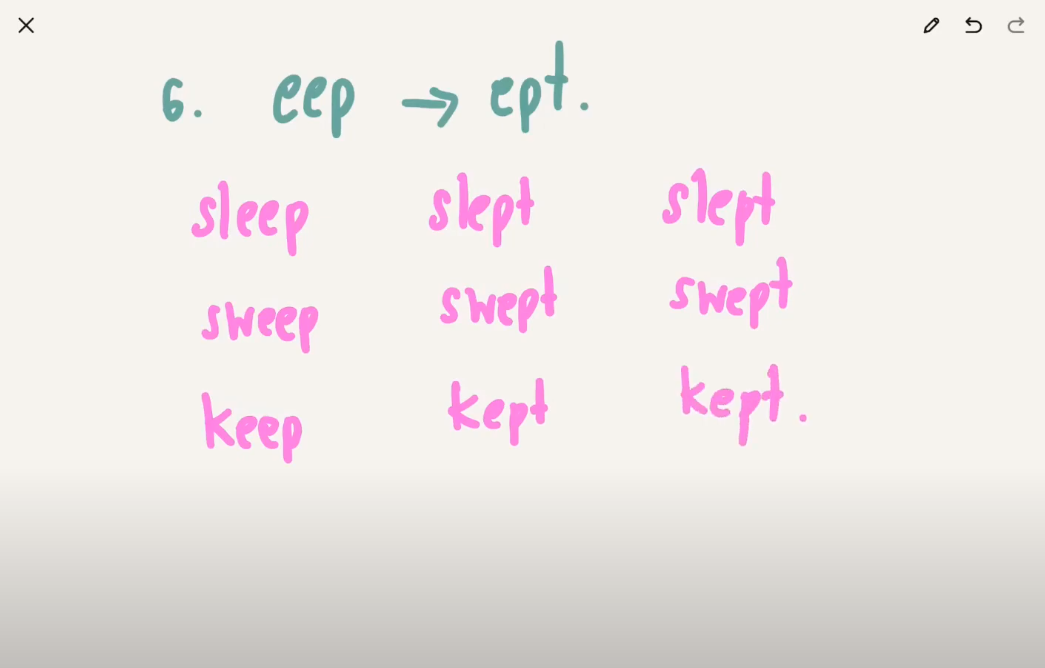 6. eep → ept.
sleep slept slept
sweep swept swept
keep kept kept.